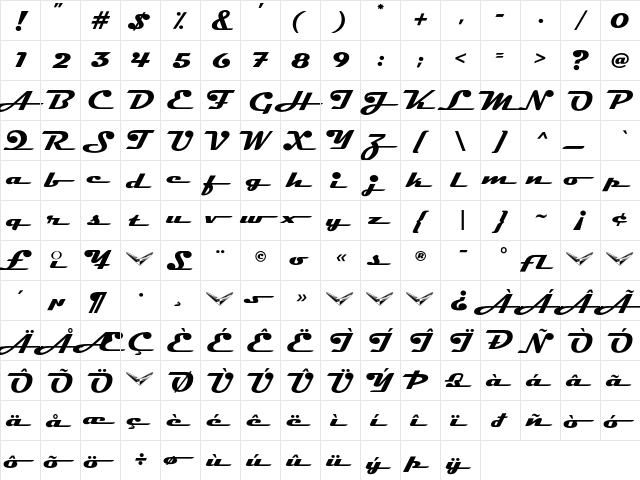 ! " # $ % & ' ( ) * + , - . / 0
1 2 3 4 5 6 7 8 9 : ; < = > ? @
A B C D E F G H I J K L M N O P
Q R S T U V W X Y Z [ \ ] ^ _
a b c d e f g h i j k l m n o p
q r s t u v w x y z { | } ~ ¡ ¢
£ Y S ¨ © « ® ¯ ° fl
´ ¶ · ¸ » ¿ À Á Â Ã
Ä Å Æ Ç È É Ê Ë Ì Í Î Ï Ð Ñ Ò Ó
Ô Õ Ö Ø Ù Ú Û Ü Ý Þ ß à á â ã
ä å æ ç è é ê ë ì í î ï đ ñ ò ó
ô õ ö ÷ ø ù ú û ü ý þ ÿ